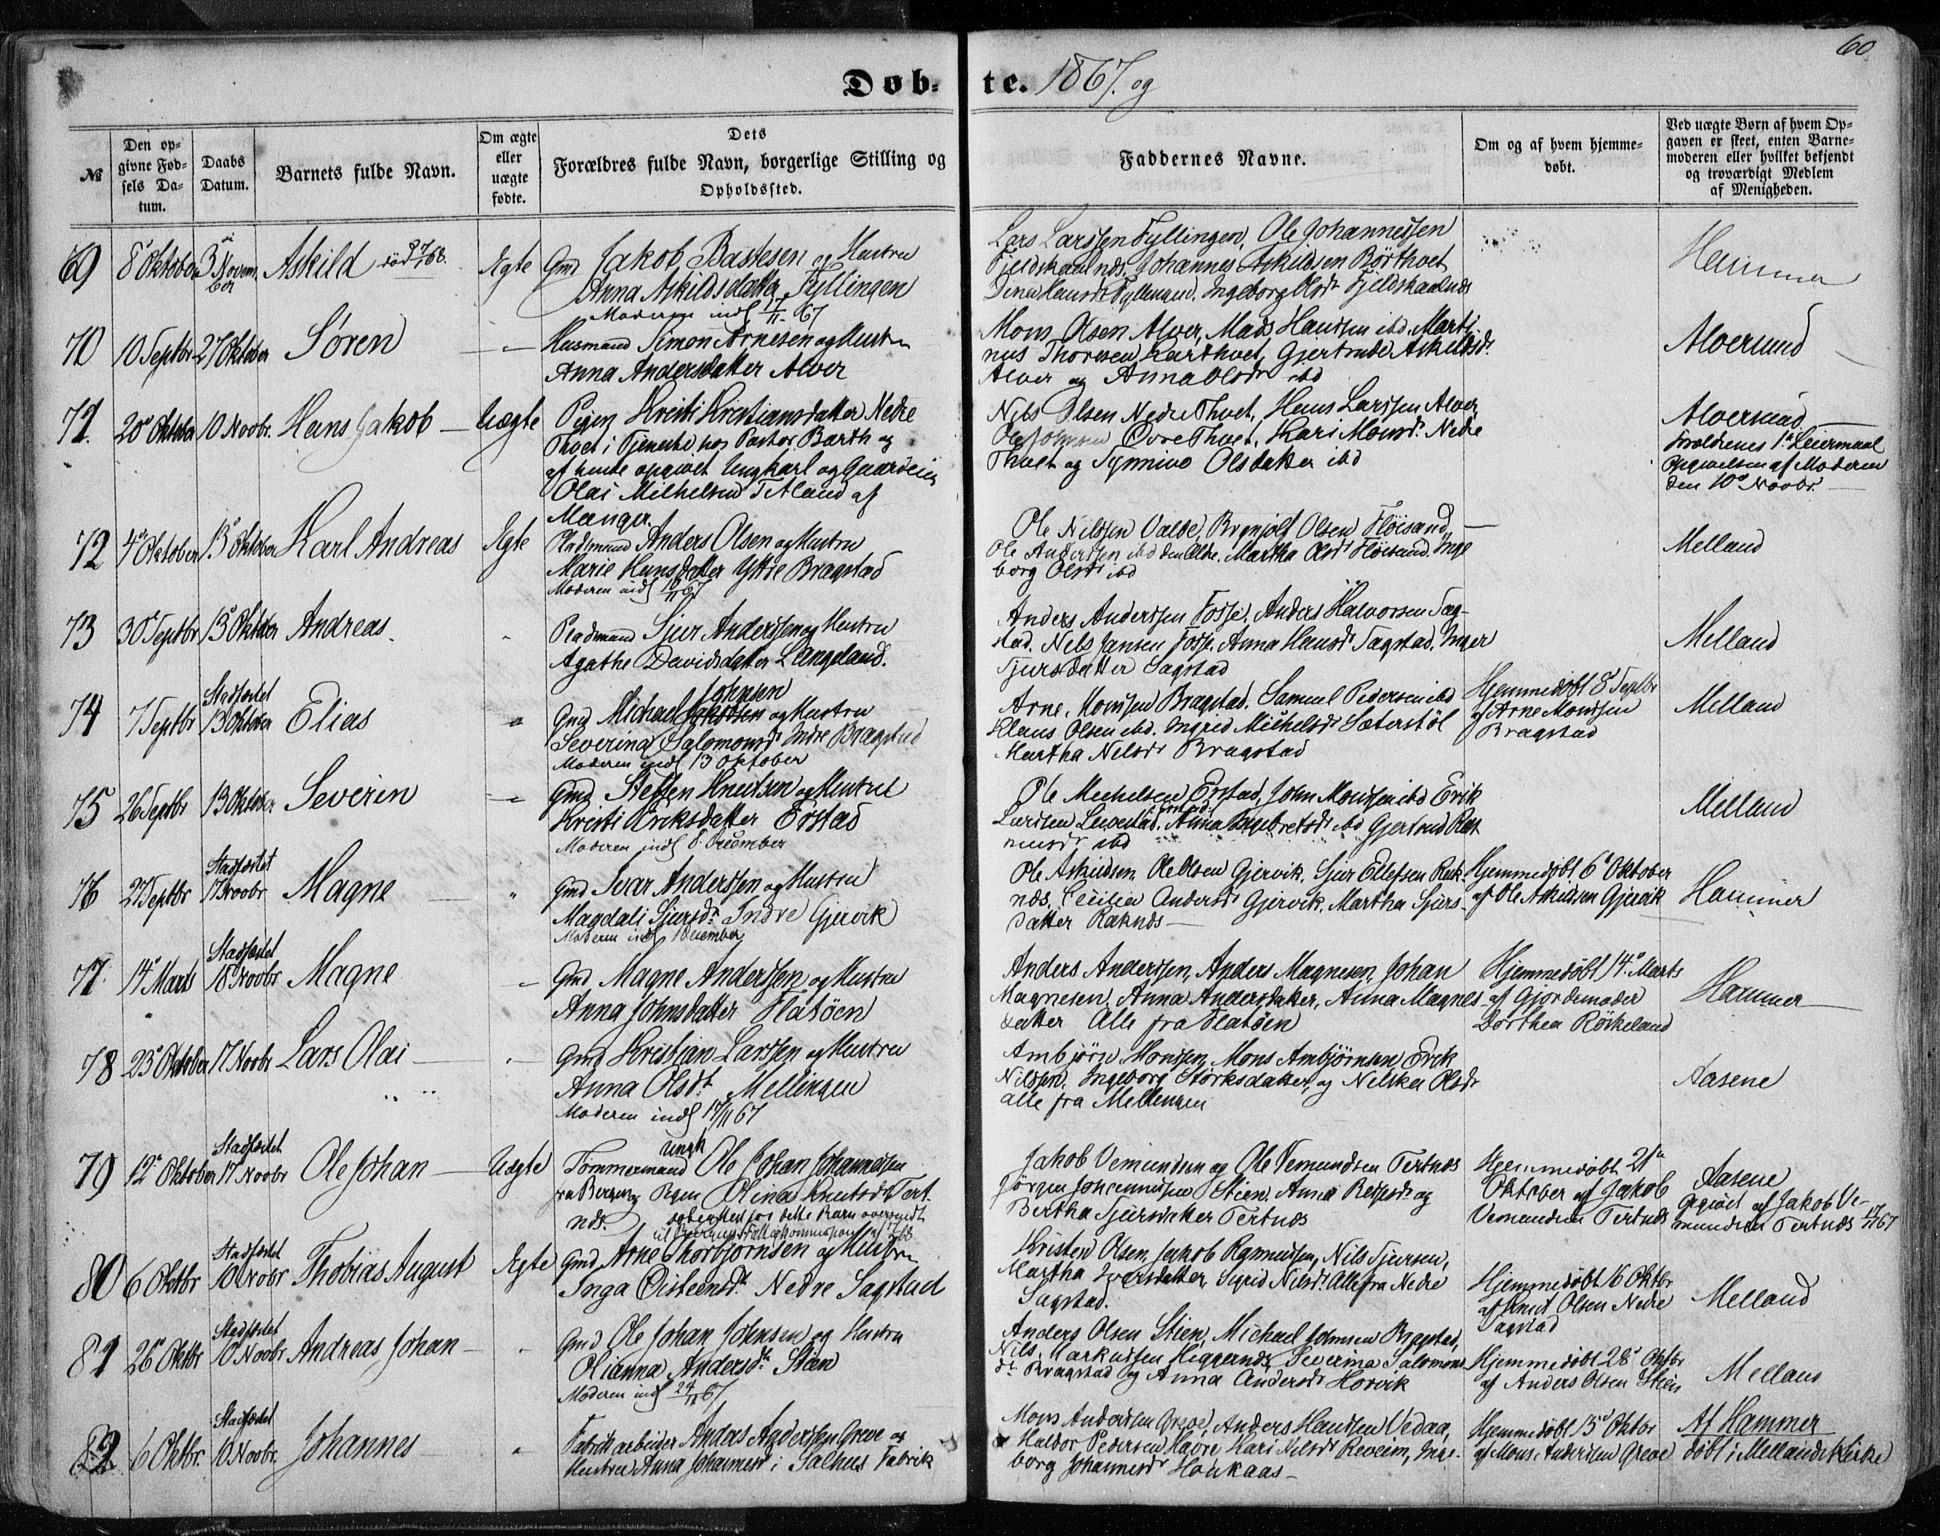 60
Døb-te. 1867. og
№
Den op-
givne Fød-
sels Da-
tum.
Daabs
Datum.
Barnets fulde Navn.
Om ægte
eller
uægte
fødte.
Dets
Forældres fulde Navn, borgerlige Stilling og
Opholdssted.
Faddernes Navne.
Om og af hvem hjemme-
døbt.
Ved uægte Børn af hvem Op-
gaven er skeet, enten Barne-
moderen eller hvilket bekjendt
og troværdigt Medlem
af Menigheden.
69 8 Oktober 3 Novem-
ber Askild død
Ægte Gmd Jakob Bastesen og Hustru
Anna Askildsdatter Fyllingen
Moderen indl
Lars Larssen Fyllingen, Ole Johannessen
Fjeldskaalnds. Johannes Askildsen Börthvet
Dina Hansdr Fyllingen. Ingeborg Olsdr Fjeldskaalnds
Hammer
70 10 Septbr 27 Oktober Søren
Husmand Simon Arnesen og Hustru
Anna Andersdatter Alver
Mons Olsen Alver, Mads Hanssen ibd. Marti-
nus Thoresen Karthvet, Gjertrude Askildsdr
Alver og Anna Olsdr ibd
Alversund
71. 20 Oktober 10 Novbr. Hans Jakob
Uægte Pigen Kristi Kristiansdatter Nedre
Thvet i Tjeneste hos Pastor Barth og
af hende opgivet Ungkarl og Gaardeier
Olai Mikkelsen Titland af
Manger.
Nils Olsen Nedre Thvet, Hans Larssen Alver
Ole Johnsen Øvre Thvet. Kari Monsdr Nedre
Thvet og Synnive Olsdatter ibd
Alversund
Forældrenes 1ste Leiermaal
Opgivelsen af Moderen
den 10 Novbr.
72 4 Oktober 13 Oktober Karl Andreas
Ægte Pladsmand Anders Olsen og Hustru
Marie Hansdatter Yttre Bragstad
Moderen indl
Ole Nilssen Valde, Brynjolf Olsen Fløisand,
Ole Anderssen ibd den Ældre. Martha Olsdr Fløisand, Inge
borg Olsdr ibd
Melland
73 30 Septbr 13 Oktober Andreas.
Pladsmand Sjur Anderssen og Hustru
Agathe Davidsdatter Langeland.
Anders Anderssen Fosse, Anders Halvorsen Sag-
stad. Nils Jansen Fosse. Anna Hansdr Sagstad. Inger
Sjursdatter Sagstad
Melland
74 7 Septbr Stadfæstet
13 Oktober Elias
Johnsen
Gmd Michael og Hustru
Severina Salomonsdr Indre Bragstad
Moderen indl 13 Oktober
Arne Monssen Bragstad. Samuel Pedersen ibd
Klaus Olsen ibd. Ingrid Michelsdr Sæterstöl
Martha Nelsdr Bragstad
Hjemmedøbt 8 Septbr
af Arne Monssen
Bragstad
Melland
75 26 Septbr 13 Oktober Severin
Gmd Steffen Knudsen og Hustru
Kristi Eriksdatter Erstad
Moderen indl 8 December
Ole Michelsen Erstad, John Monssen ibd Erik
Larssen Anna Ingebretsdr ibd Gjertrud Ras
musdr ibd
Melland
76 27 Septbr Stadfæstet
17 Novbr Magne
Gmd Ivar Anderssen og Hustru
Magdali Sjursdr Indre Gjervik
Moderen indl 1 December
Ole Askildsen Ole Olsen Gjervik. Sjur Ellefsen Rak-
nds, Cecilia Andersdr Gjervik. Martha Sjurs-
datter Raknds
Hjemmedøbt 6 Oktober
af Ole Askildsen Gjervik
Hammer
77. 14 Marts Stadfæstet
18 Novbr Magne
Gmd Magne Anderssen og Hustru
Anna Johnsdatter Flatöen
Anders Anderssen, Anders Magnesen, Johan
Magnesen. Anna Andersdatter, Anna Magnes-
datter Alle fra Flatöen
Hjemmedøbt 14 Marts
af Gjordemoder
Dorthea Röikeland
Hammer
78 23 Oktober 17 Novbr Lars Olai
Gmd Kristjan Larssen og Hustru
Anna Olsdr Mellingen
Moderen indl 17/11 67
Ambjörn Monssen, Mons Ambjörnsen Erik
Nilssen. Ingeborg Störksdatter, og Nilska Olsdr
alle fra Mellingen
Aasene
79 12 Oktober Stadfæstet
17 Novbr Ole Johan
Uægte Tømmermand Ungk Ole Johan Johannessen
fra Bergen og Pigen Olina Knutsdr Tert-
nds.
Jakob Vemundsen og Ole Vemundsen Tertnds
Jörgen Johannessen Stien. Anna og
Bertha Sjursdatter Tertnds
Hjemmedøbt 21
Oktober af Jakob
Vemundsen Tertnds
Aasene
Opgivet af Jakob Ve-
mundsen Tertnds 17/11 67
80 6 Oktbr Stadfæstet
10 Novbr Thobias August
Ægte Gmd Arne Thorbjörnsen og Hustru
Inga Øisteinsdr Nedre Sagstad
Kristen Olsen, Jakob Rasmussen, Nils Sjursen,
Martha Iversdatter, Sigrid Nilsdr. Alle fra Nedre
Sagstad.
Hjemmedøbt 16 Oktbr
af Knut Olsen Nedre
Sagstad
Melland
81 26 Oktbr Stadfæstet
10 Novbr Andreas Johan
Gmd Ole Johan Johnsen og Hustru
Olianna Andersdtr Stien
Moderen indl 24/11 67
Anders Olsen Stien, Michael Johnsen Bragstad,
Nils Markussen Heggernds, Severina Salomons
dr Bragstad og Anna Andersdr Hopvik
Hjemmedøbt 28 Oktbr
af Anders Olsen Stien
Melland
82 6 Oktbr. Stadfæstet
10 Novbr. Johannes
Fabrikarbeider Anders Anderssen Greve og
Hustru Anna Johannesdr i Salhus Fabrik
Mons Anderssen Greve, Anders Hanssen Vedaa,
Haldor Pedersen Havre Kari Nilsdr Reveim, Inge-
borg Johannesdr Haukaas
Hjemmedøbt 15 Oktbr
af Mons Anderssen Greve
Af Hammer
døbt i Mellands Kirke